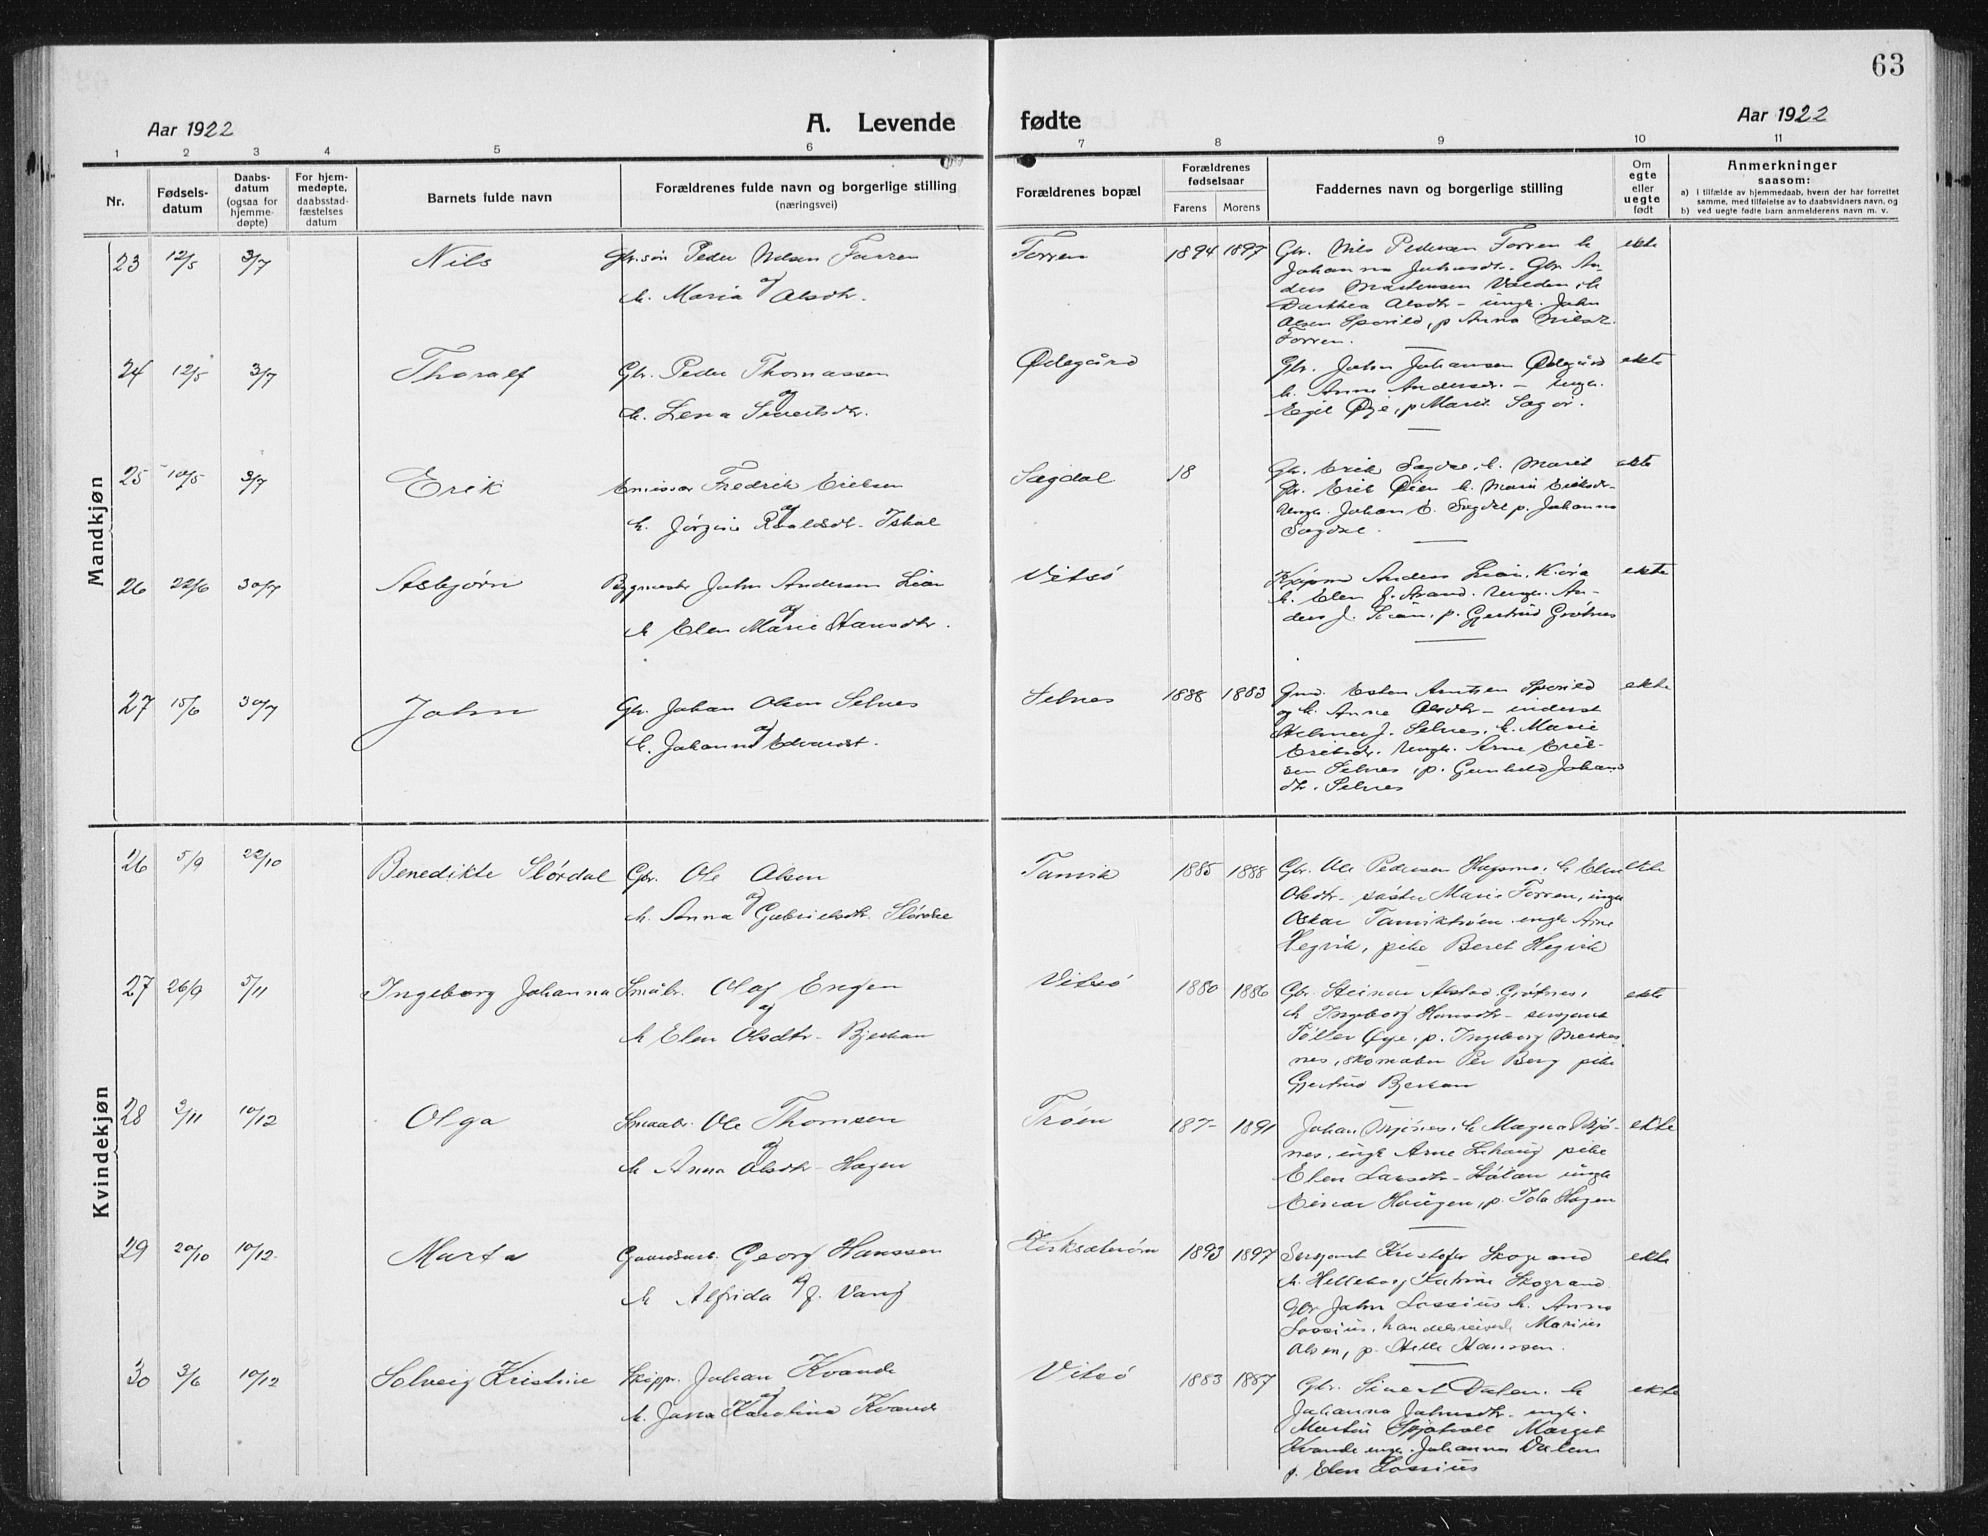 63
Aar 1922
A. Levende
fødte
Aar 1922
1 2 3 4 5 6 7 8 9 10 11
Nr.
Fødsels-
datum
Daabs-
datum
(ogsaa for
hjemme-
døpte)
For hjem-
medøpte,
daabsstad-
fæstelses
datum
Barnets fulde navn
Forældrenes fulde navn og borgerlige stilling
(næringsvei)
Forældrenes bopæl
Forældrenes
fødselsaar
Farens Morens
Faddernes navn og borgerlige stilling
Om
egte
eller
uegte
født
Anmerkninger
saasom:
a) I tilfælde av hjemmedaab, hvem der har forrettet
samme, med tilføielse av to daabsvidners navn, og
b) ved uegte fødte barn anmelderens navn m. v.
Mandkjøn
23 12/5 3/7 Nils
Gbr.søn Peder Nilsen Forren
og
h. Maria Olsdtr.
Forren 1894 1897
Gbr. Nils Pedersen Forren h.
Johanna Johnsdtr. Gbr. An-
ders Mortensen Valden, h.
Dorthea Olsdtr - ungk. John
Olsen Sporild, p Anna Nilsdt.
Forren.
ekte
24 12/5 3/7 Thoralf
Gbr. Peder Thomassen
og
h. Lena Sivertsdtr.
Ødegård
Gbr. John Johansen Ødegård
h. Anne Andersdtr. - ungk.
Egil Øye, p Marit
ekte
25 10/5 3/7 Erik
Emissær Fredrik Eriksen
og
h. Jørgine Roaldsdtr.
Sagdal 18
Gbr. Erik Sagdal, h. Marit
Gbr. Erik Øien h. Marit Eriksdtr-
Ungk. Johan E. Sagdal p. Johanna
Sagdal.
ekte
26 22/6 30/7 Asbjørn
Bygmestr John Andersen Lian
og
h Elen Marie Hansdtr.
Vitsö
Kjøpm Anders Lian,
h. Elen J. Strand. Ungk. An-
ders J. Lian, p. Gjertrud Grøtnes
ekte
27 15/6 30/7 John
Gbr. Johan Olsen Selnes
og
h. Johanna Edvardst.
Selnes 1888 1883
Gmd. Esten Arntsen Sporild
og h. Anne Olsdtr - inderst
Hilmer J. Selnes, h. Marie
Eriksdr. Ungk. Arne Erik-
sen Selnes, p. Gunhild Johans
dtr. Selnes
ekte
Kvindekjøn
26 5/9 22/10 Benedikte Slørdal
Gbr. Ole Olsen
og
h. Anna Gabrielsdtr. Slørdal
Tanvik 1885 1888
Gbr. Ole Pedersen Hagsmo, h Elen
Olsdtr. søster Marie Forren, ungk
Oskar Tanviktrøen ungk Arne
Hegvik, pike Beret Hegvik
ekte
27 26/9 5/11 Ingeborg Johanna
Småbr. Olaf Engen
og
h Elen Olsdtr - Bjerkan
Vitsö 1880 1886
Gbr. Steinar Alstad Grøtnes,
h Ingeborg Hansdtr - sersjant
Pøller Øye, p. Ingeborg Merkes-
nes, skomaker Per Berg pike
Gjertrud Bjerkan
ekte
28 2/11 10/12 Olga
Smaabr. Ole Thomsen
og
h Anna Olsdtr - Hagen
Trøen 187- 1891
Johan Mjønes, h Magna Mjø-
nes, ungk Arne Lihaug pike
Elen Larsdtr - Stølan ungk
Einar Haugen, p. Ida Hagen
ekte
29 20/10 10/12 Marta
Gaardsarb. Georg Hanssen
og
h Alfrida J. Vang
Kirksæterøra 1893 1897
Sersjant Kristofer Skogrand
h. Helleborg Katrine Skogrand
Gbr John Lossius h. Anna
Lossius, handelsreisende Marius
Olsen, p. Hanssen.
ekte
30 3/6 10/12 Solveig Kristine
Skippr. Johan Kvande
og
h. Jana Karolina Kvande
Vitsö 1883 1887
Gbr. Sivert Dalen, h
Johanna Johnsdtr - ungk.
Martin Margit
Kvande ungk. Johannes Dalen
p. Elen Lossius
ekte